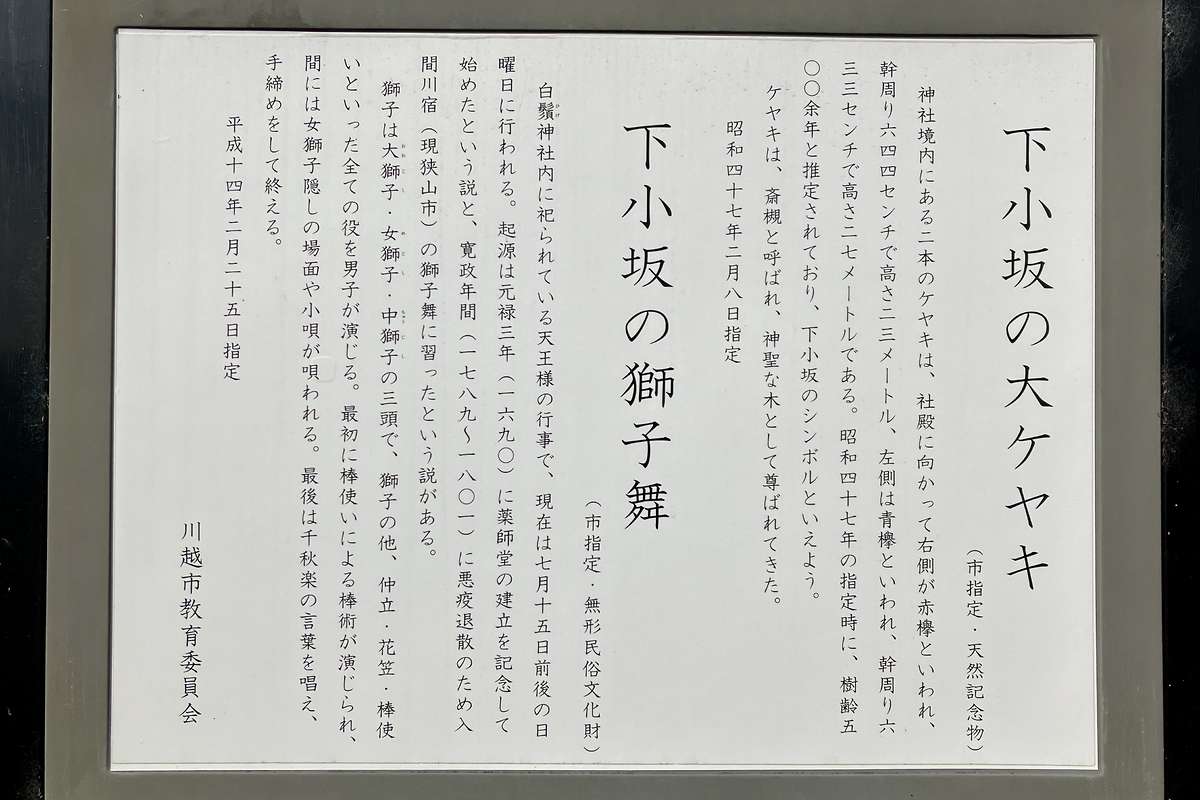 下小坂の大ケヤキ
（市指定・天然記念物）
神社境内にある二本のケヤキは、社殿に向かって右側が赤欅といわれ、
幹周り六四四センチで高さ二三メートル、左側は青欅といわれ、幹周り六
三三センチで高さ二七メートルである。昭和四十七年の指定時に、樹齢五
〇〇余年と推定されており、下小坂のシンボルといえよう。
ケヤキは、斎槻と呼ばれ、神聖な木として尊ばれてきた。
昭和四十七年二月八日指定
下小坂の獅子舞
（市指定・無形民俗文化財）
白鬚神社内に祀られている天王様の行事で、現在は七月十五日前後の日
曜日に行われる。起源は元禄三年（一六九〇）に薬師堂の建立を記念して
始めたという説と、寛政年間（一七八九〜一八〇一）に悪疫退散のため入
間川宿（現狭山市）の獅子舞に習ったという説がある。
獅子は大獅子・女獅子・中獅子の三頭で、獅子の他、仲立・花笠・棒使
いといった全ての役を男子が演じる。最初に棒使いによる棒術が演じられ、
間には女獅子隠しの場面や小唄が唄われる。最後は千秋楽の言葉を唱え、
手締めをして終える。
平成十四年二月二十五日指定
川越市教育委員会